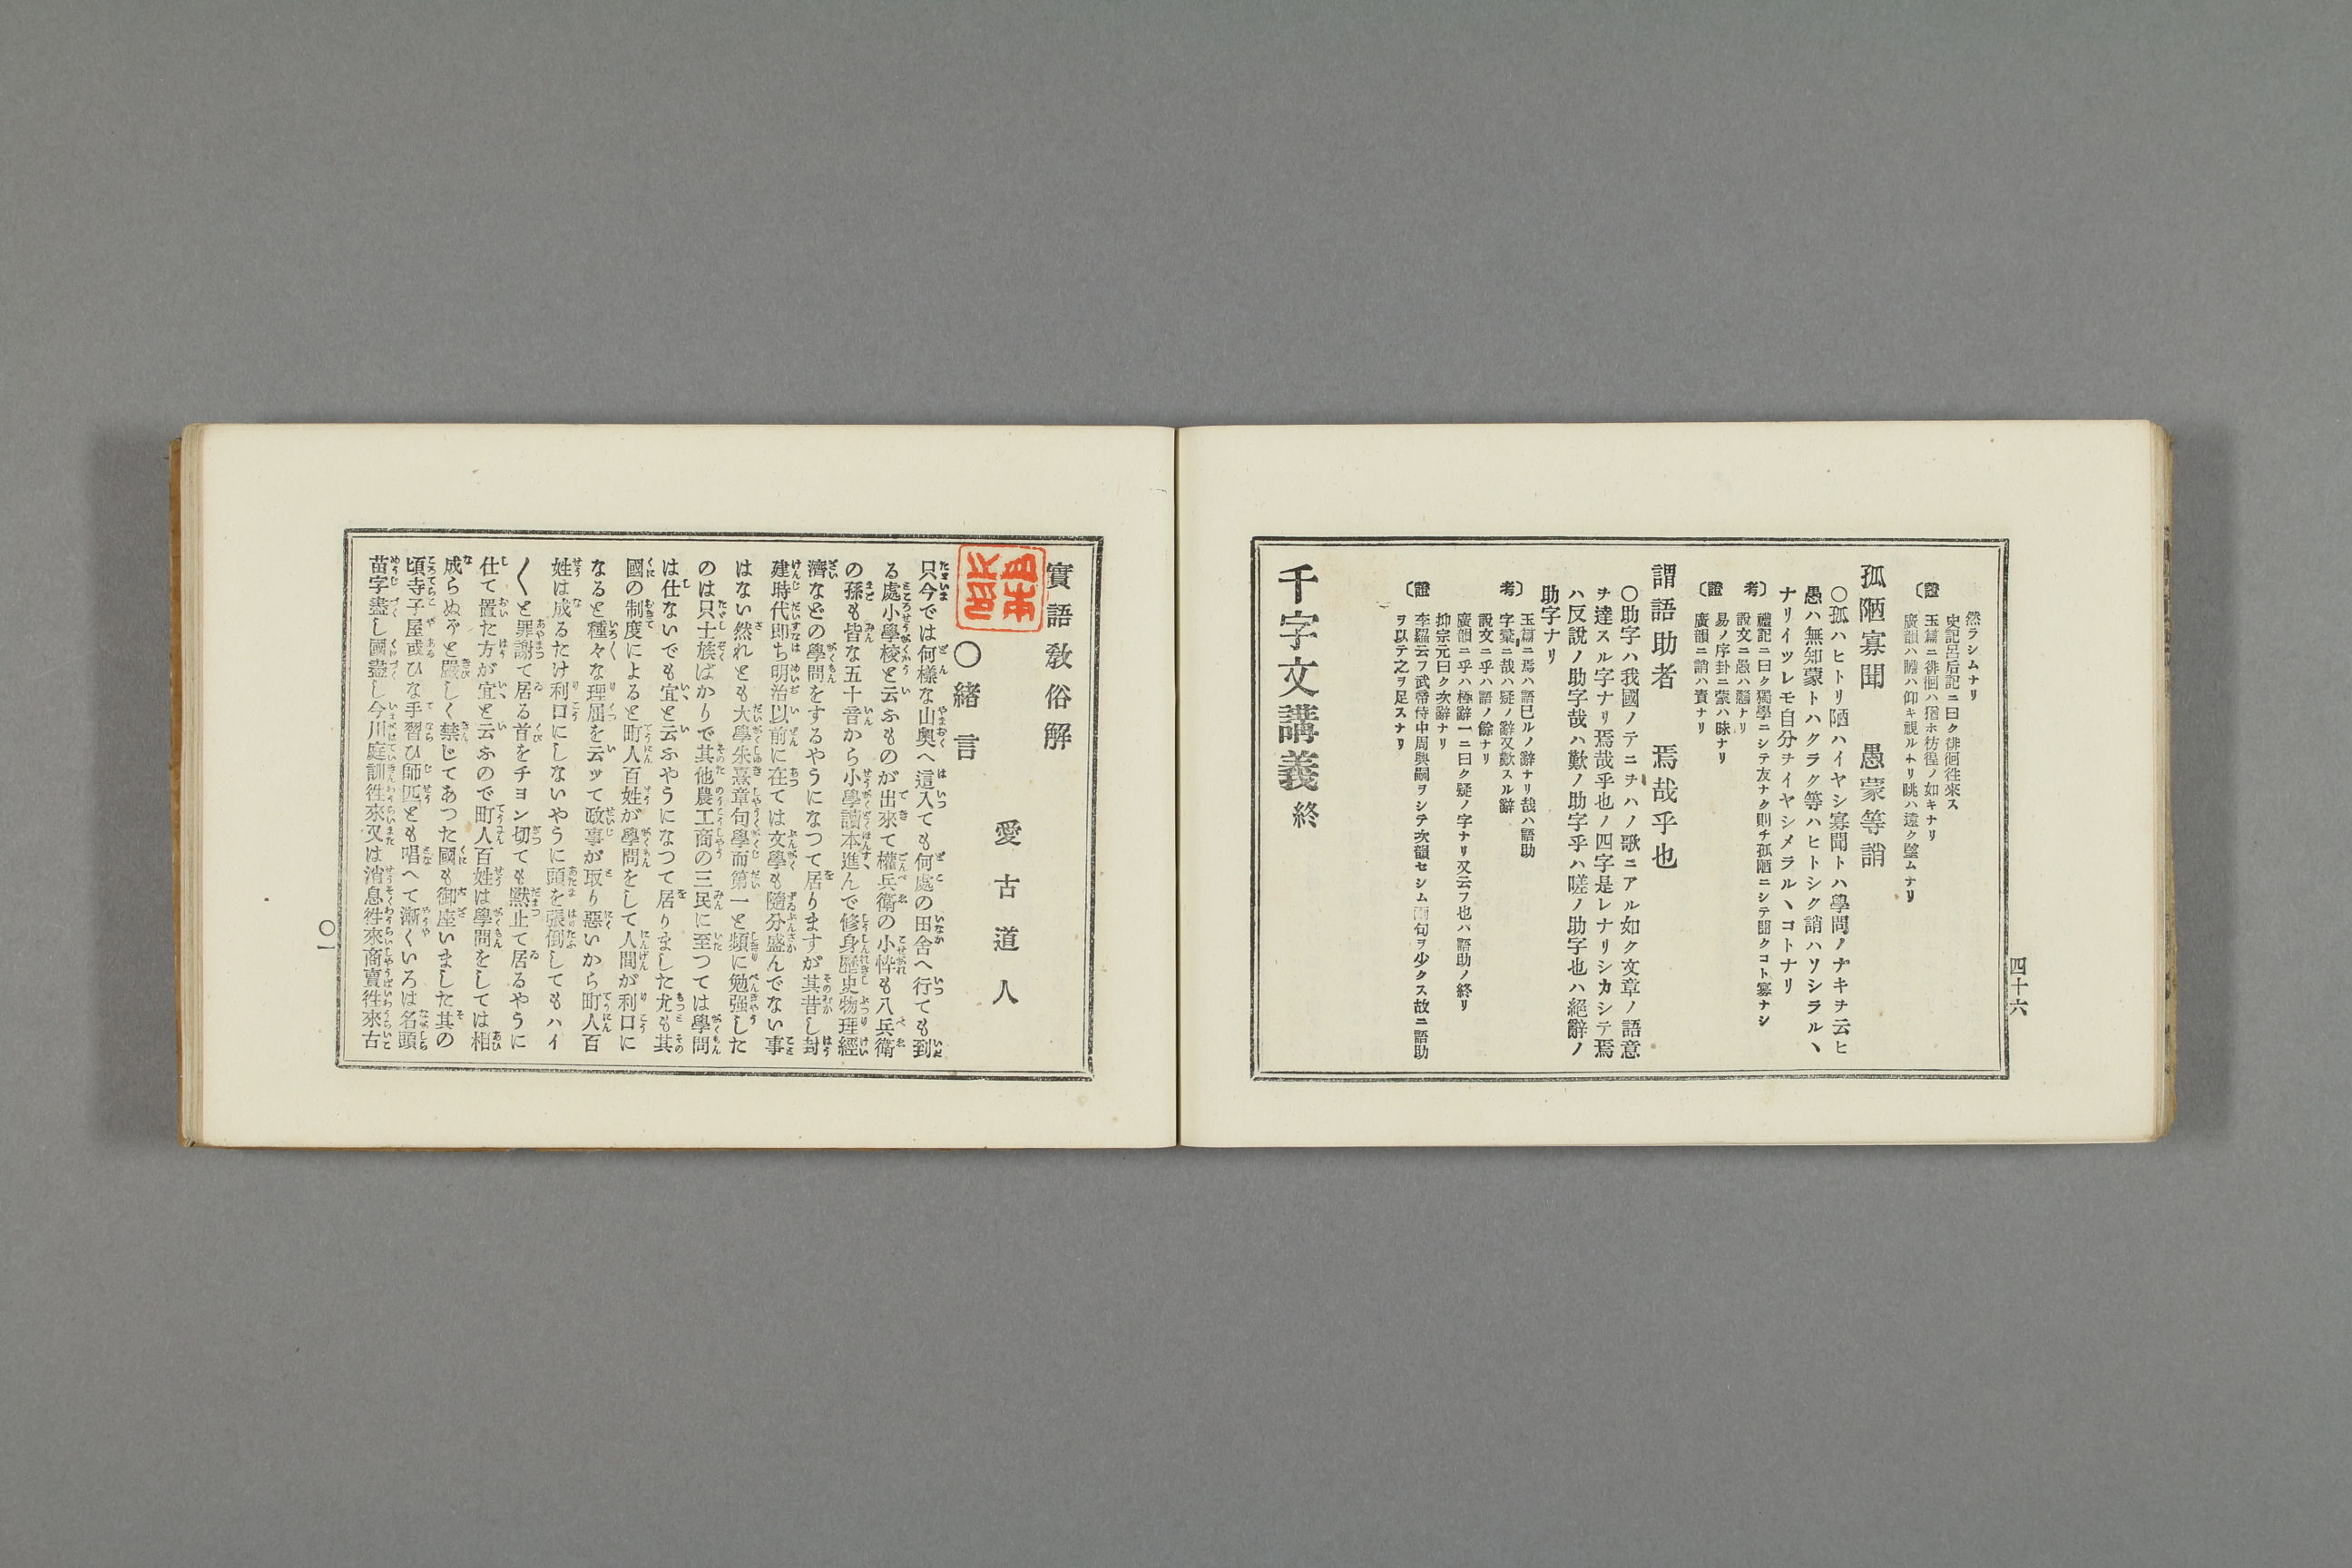 四十六
然ラシムナリ
史記呂后記ニ曰ク徘徊徃來ス
〔證 玉篇ニ徘徊ハ猶ホ彷徨ノ如キナリ
廣韻ハ瞻ハ仰キ視ルナリ眺ハ遠ク望ムナリ
孤陋寡聞 愚蒙等誚
〇孤ハヒトリ陋ハイヤシ寡聞トハ學問ノナキヲ云ヒ
愚ハ無知蒙トハクラク等ハヒトシク誚ハソシラルヽ
ナリイツレモ自分ヲイヤシメラルヽコトナリ
禮記ニ曰ク獨學ニシテ友ナク則チ孤陋ニシテ聞クコト寡ナシ
考〕 說文ニ愚ハ戇ナリ
易ノ序卦ニ蒙ハ昧ナリ
〔證 廣韻ニ誚ハ責ナリ
謂語助者 焉哉乎也
〇助字ハ我國ノテニヲハノ歌ニアル如ク文章ノ語意
ヲ達スル字ナリ焉哉乎也ノ四字是レナリシカシテ焉
ハ反說ノ助字哉ハ歎ノ助字乎ハ嗟ノ助字也ハ絕辭ノ
助字ナリ
玉篇ニ焉ハ語巳ルノ辭ナリ哉ハ語助
考〕 字彙ニ哉ハ疑ノ辭又歎スル辭
說文ニ乎ハ語ノ餘ナリ
廣韻ニ乎ハ極辭一ニ曰ク疑ノ字ナリ又云フ也ハ語助ノ終リ
抑宗元曰ク次辭ナリ
〔證 李羅云フ武帝侍中周興嗣ヲシテ次韻セシム兩句ヲ少クス故ニ語助
ヲ以テ之ヲ足スナリ
千字文講義終
實語敎俗解
愛古道人
〇緖言
只今では何樣な山奧へ這入ても何處の田舍へ行ても到
る處小學校と云ふものが出來て權兵衛の小忰も八兵衛
の孫も皆な五十音から小學讀本進んで修身歷史物理經
濟などの學問をするやうになつて居りますが其昔し封
建時代即ち明治以前に在ては文學も隨分盛んでない事
はない然れとも大學朱熹章句學而第一と頻に勉强した
のは只士族ばかりで其他農工商の三民に至つては學問
は仕ないでも宜と云ふやうになつて居りました尤も其
國の制度によると町人百姓が學問をして人間が利口に
なると種々な理屈を云ッて政事が取り惡いから町人百
姓は成るたけ利口にしないやうに頭を張倒してもハイ
〱と罪謝て居る首をチヨン切ても默止て居るやうに
仕て置た方が宜と云ふので町人百姓は學問をしては相
成らぬゾと嚴しく禁じてあつた國も御座いました其の
頃寺子屋或ひな手習ひ師匹とも唱へて漸くいろは名頭
苗字盡し國盡し今川庭訓徃來又は消息徃來商賣徃來古
〇一